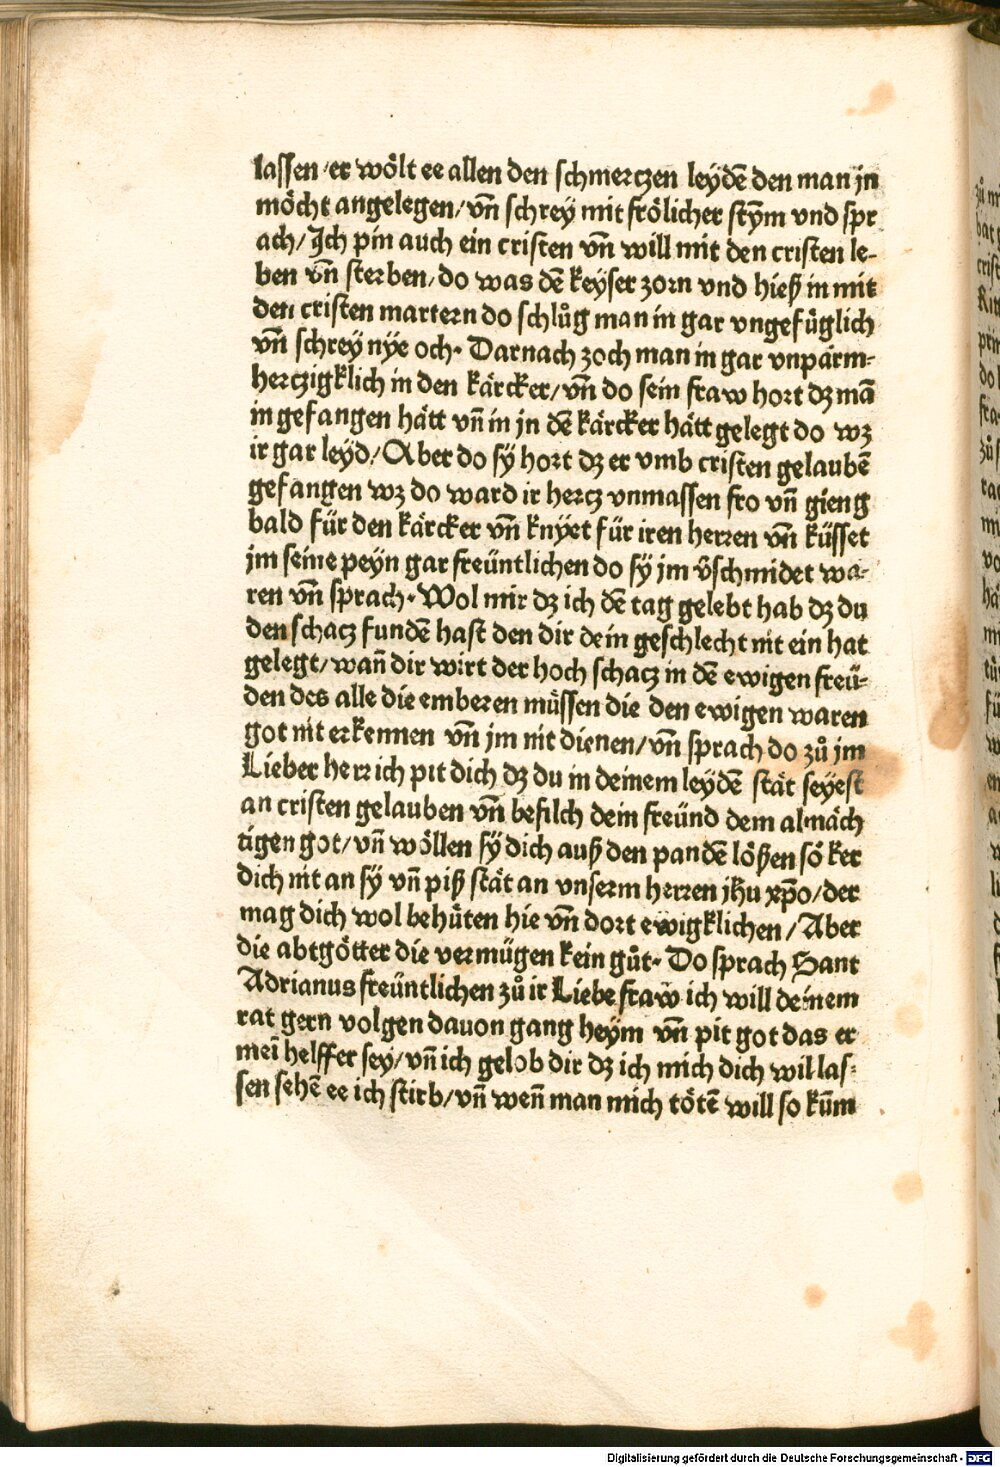 lassen / er wölt ee allen den schmerczen leydē den man jn
möcht angelegen / vn̄ schrey mit frölicher stȳm vnd spr
ach / Jch pin auch ein cristen vn̄ will mit den cristen le-
ben vn̄ sterben / do was dē keyser zorn vnd hieß in mit
den cristen martern do schlůg man in gar vngefüglich
vn̄ schrey nye och. Darnach zoch man in gar vnparm-
herczigklich in den kärcker / vn̄ do sein fraw hort dz mā
in gefangen hätt vn̄ in jn dē kärcker hätt gelegt do wz
ir gar leyd / Aber do sÿ hort dz er vmb cristen gelaubē
gefangen wz do ward ir hercz vnmassen fro vn̄ gieng
bald für den kärcker vn̄ knÿet für iren herren vn̄ küsset
jm seine peyn gar freüntlichen do sÿ jm v̄schmidet wa-
ren vn̄ sprach. Wol mir dz ich dē tag gelebt hab dz du
den schacz fundē hast den dir dein geschlecht nit ein hat
gelegt / wan̄ dir wirt der hoch schacz in dē ewigen freü-
den des alle die emberen müssen die den ewigen waren
got nit erkennen vn̄ jm nit dienen / vn̄ sprach do zů jm
Lieber herr ich pit dich dz du in deinem leydē stät seyest
an cristen gelauben vn̄ befilch dein freünd dem almäch
tigen got / vn̄ wöllen sÿ dich auß den pandē lößen sō ker
dich nit an sÿ vn̄ piß stät an vnserm herren jh̄u xp̄o / der
mag dich wol behüten hie vn̄ dort ewigklichen / Aber
die abtgötter die vermügen kein gůt. Do sprach Sant
Adrianus freüntlichen zů ir Liebe fraw ich will deinem
rat gern volgen dauon gang heym vn̄ pit got das er
mei̅ helffer sey / vn̄ ich gelob dir dz ich mich dich wil las-
sen sehē ee ich stirb / vn̄ wen̄ man mich tötē will so kūm
Digitalisierung gefördert durch die Deutsche Forschungsgemeinschaft - DFG